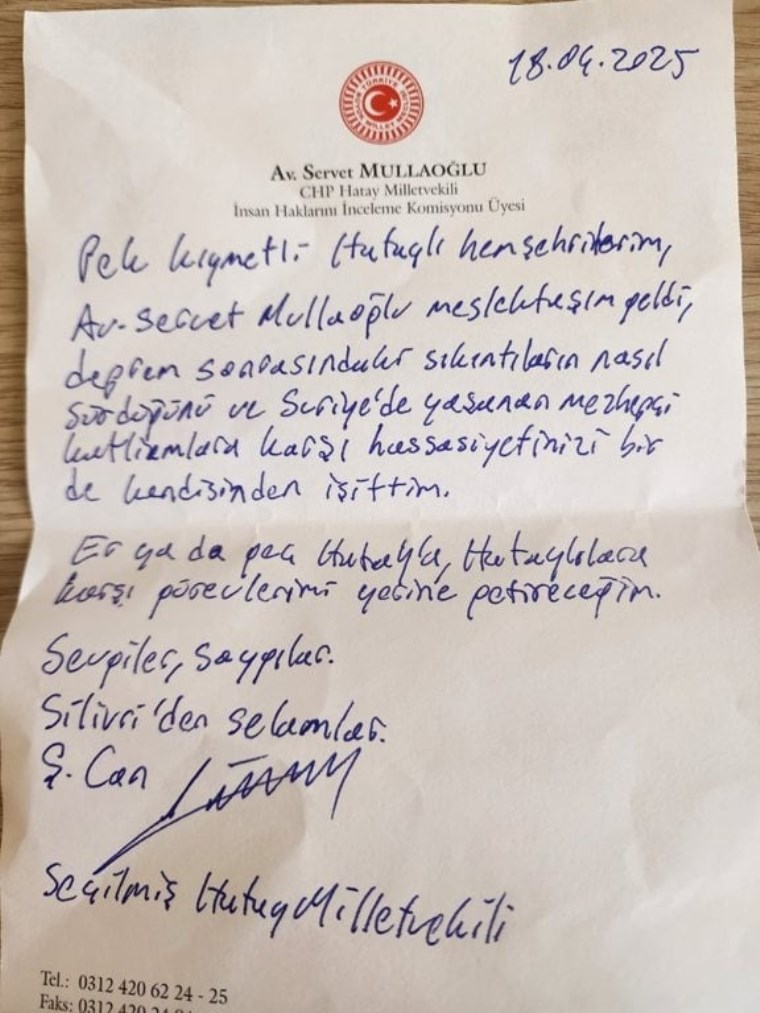 18.04.2025
TÜRKİYE BÜYÜK MİLLET MECLİSİ
Av. Servet MULLAOĞLU
CHP Hatay Milletvekili
İnsan Haklarını İnceleme Komisyonu Üyesi
Pek kıymetli Hataylı hemşehrilerim,
Av. Servet Mullaoğlu meslektaşım geldi,
deprem sonrasındaki sıkıntıların nasıl
sürdüğünü ve Suriye'de yaşanan mezhepçi
katliamlara karşı hassasiyetinizi bir
de kendisinden işittim.
Er ya da geç Hatay'a, Hataylılara
karşı görevlerimi yerine getireceğim.
Sevgiler, saygılar.
Silivri'den selamlar.
Ş. Can
Seçilmiş Hatay Milletvekili
Tel.: 0312 420 62 24 - 25
Faks: 0312 420